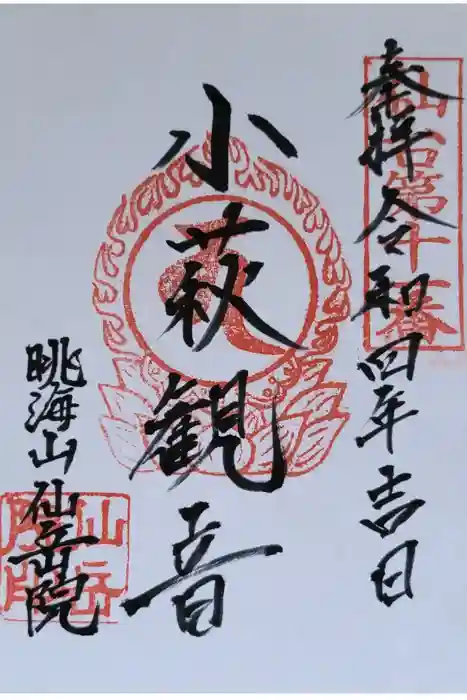 奉拝 令和四年吉日
仙台第十番
小萩観音
眺海山 仙岳院